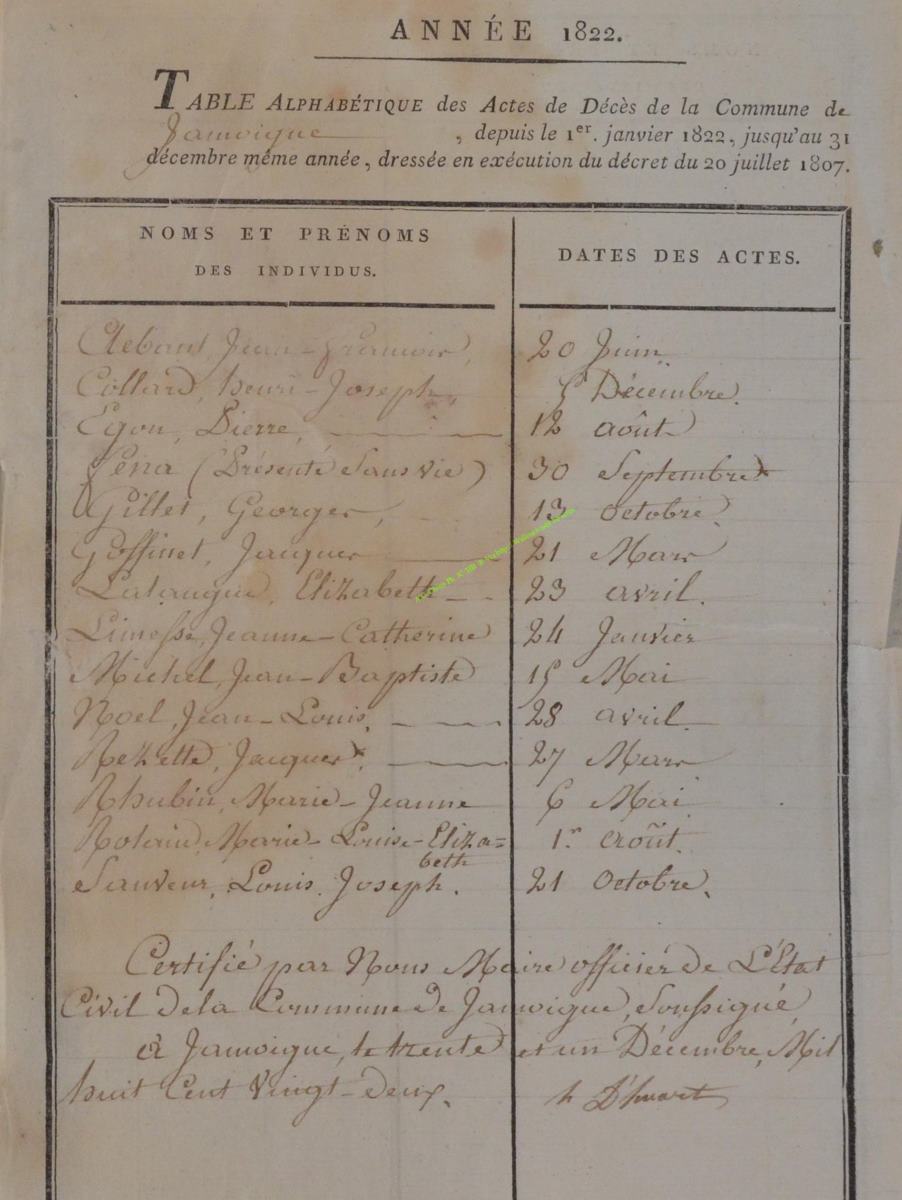 ANNÉE 1822.
TABLE ALPHABÉTIQUE des Actes de Décès de la Commune de
Jamoigne, depuis le 1er. janvier 1822, jusqu'au 31
décembre même année, dressée en exécution du décret du 20 juillet 1807.
NOMS ET PRÉNOMS
DES INDIVIDUS.
DATES DES ACTES.
Jean-François, 20 Juin
Collard, henri-Joseph, 5 Décembre.
Egon, Pierre, 12 août
Féna (Présenté Sans vie) 30 Septembre
Gillet, Georges, 13 octobre
Goffinet, Jacques 21 Mars
Elizabeth 23 avril.
Limesse, Jeanne-Catherine 24 Janvier
Michel, Jean-Baptiste 15 Mai
Noel, Jean-Louis, 28 avril
Rezette, Jacques, 27 Mars
Rhubin, Marie-Jeanne 6 Mai
Marie-Louise-Eliza= 1r. août.
beth
Sauveur, Louis Joseph. 21 Octobre.
Certifié par Nous Maire officier de L'État
Civil de la Commune de Jamoigne, Soussigné,
à Jamoigne, le trente et un Décembre, Mil
huit Cent Vingt-deux.
h D'huart